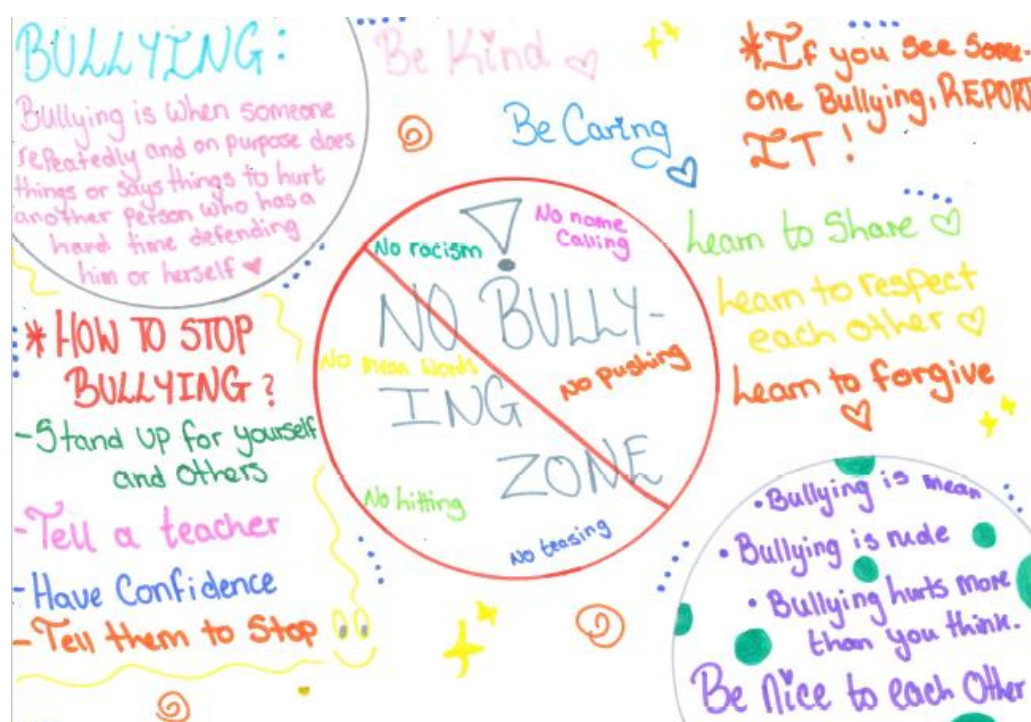 BULLYING:
Bullying is when someone
repeatedly and on purpose does
things or says things to hurt
another person who has a
hard time defending
him or herself
Be Kind
Be Caring
*If you see some-
one Bullying, REPORT
IT!
Learn to Share
Learn to respect
each other
Learn to forgive
No racism
No name
Calling
NO BULLY-
No mean words
No pushing
ING
ZONE
No hitting
No teasing
*HOW TO STOP
BULLYING?
-Stand up for yourself
and others
-Tell a teacher
-Have Confidence
-Tell them to Stop
•Bullying is mean
•Bullying is rude
•Bullying hurts more
than you think.
Be Nice to each Other